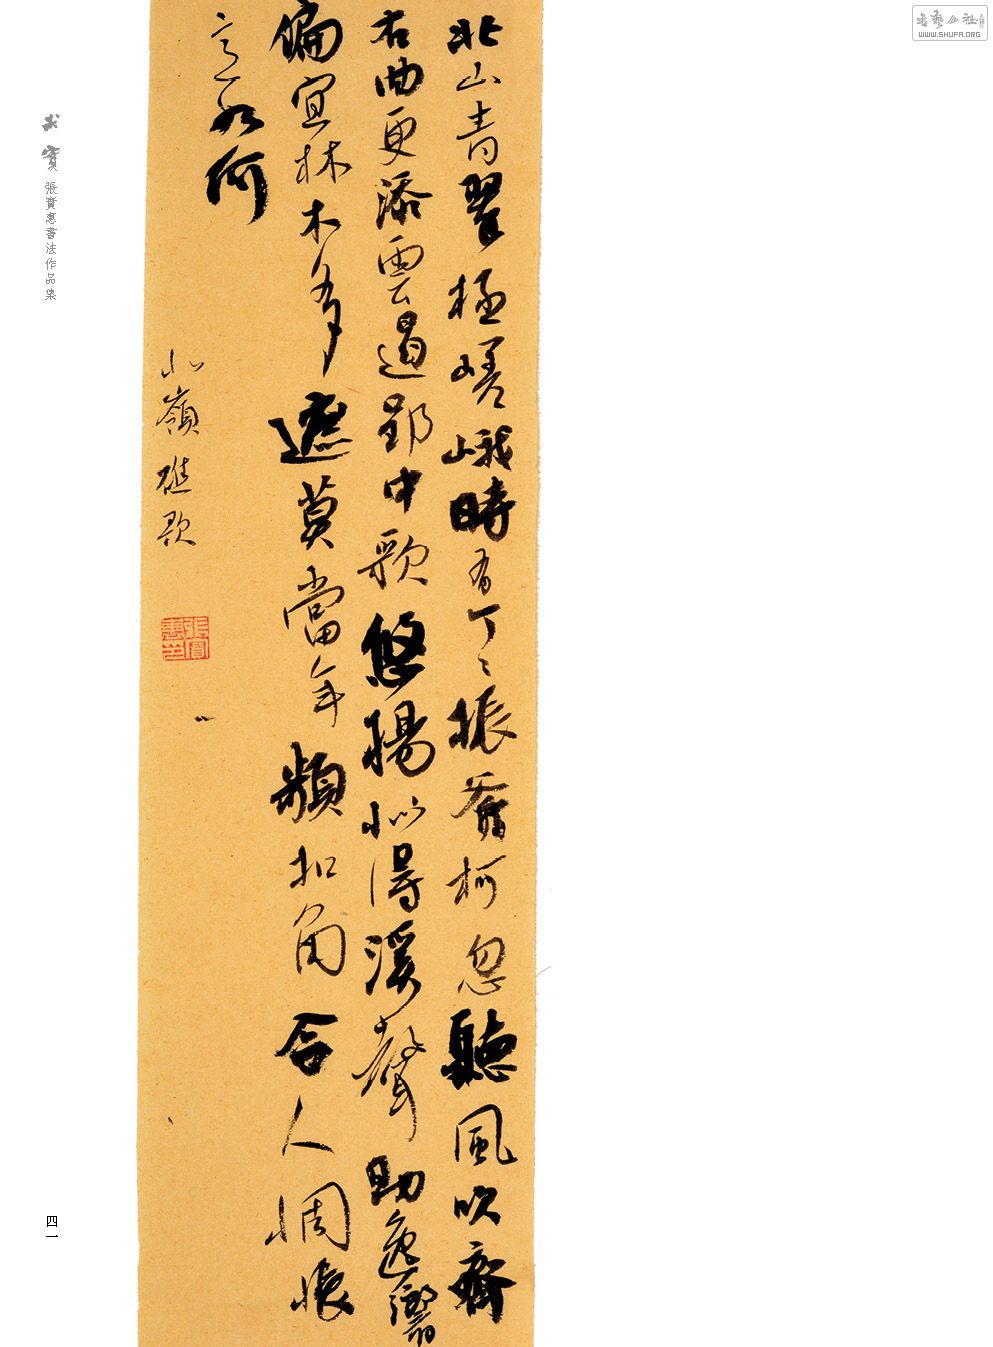 書藝公社
WWW.SHUFA.ORG
北山青翠極嵯峨時有丁々振斧柯忽聽風吹齊
右曲更添雲遏郢中歌悠揚似得溪聲助逸響
偏宜林木多遮莫當年頻扣角令人惆悵
意如何
北嶺樵歌
張實惠印
求實 張實惠書法作品集
四一